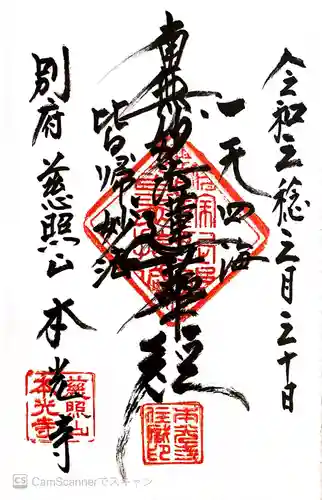 令和五稔三月三十日
一天四海
南無妙法蓮華経
皆帰妙法
別府 慈照山 本光寺
慈照山
本光寺
CS CamScannerでスキャン